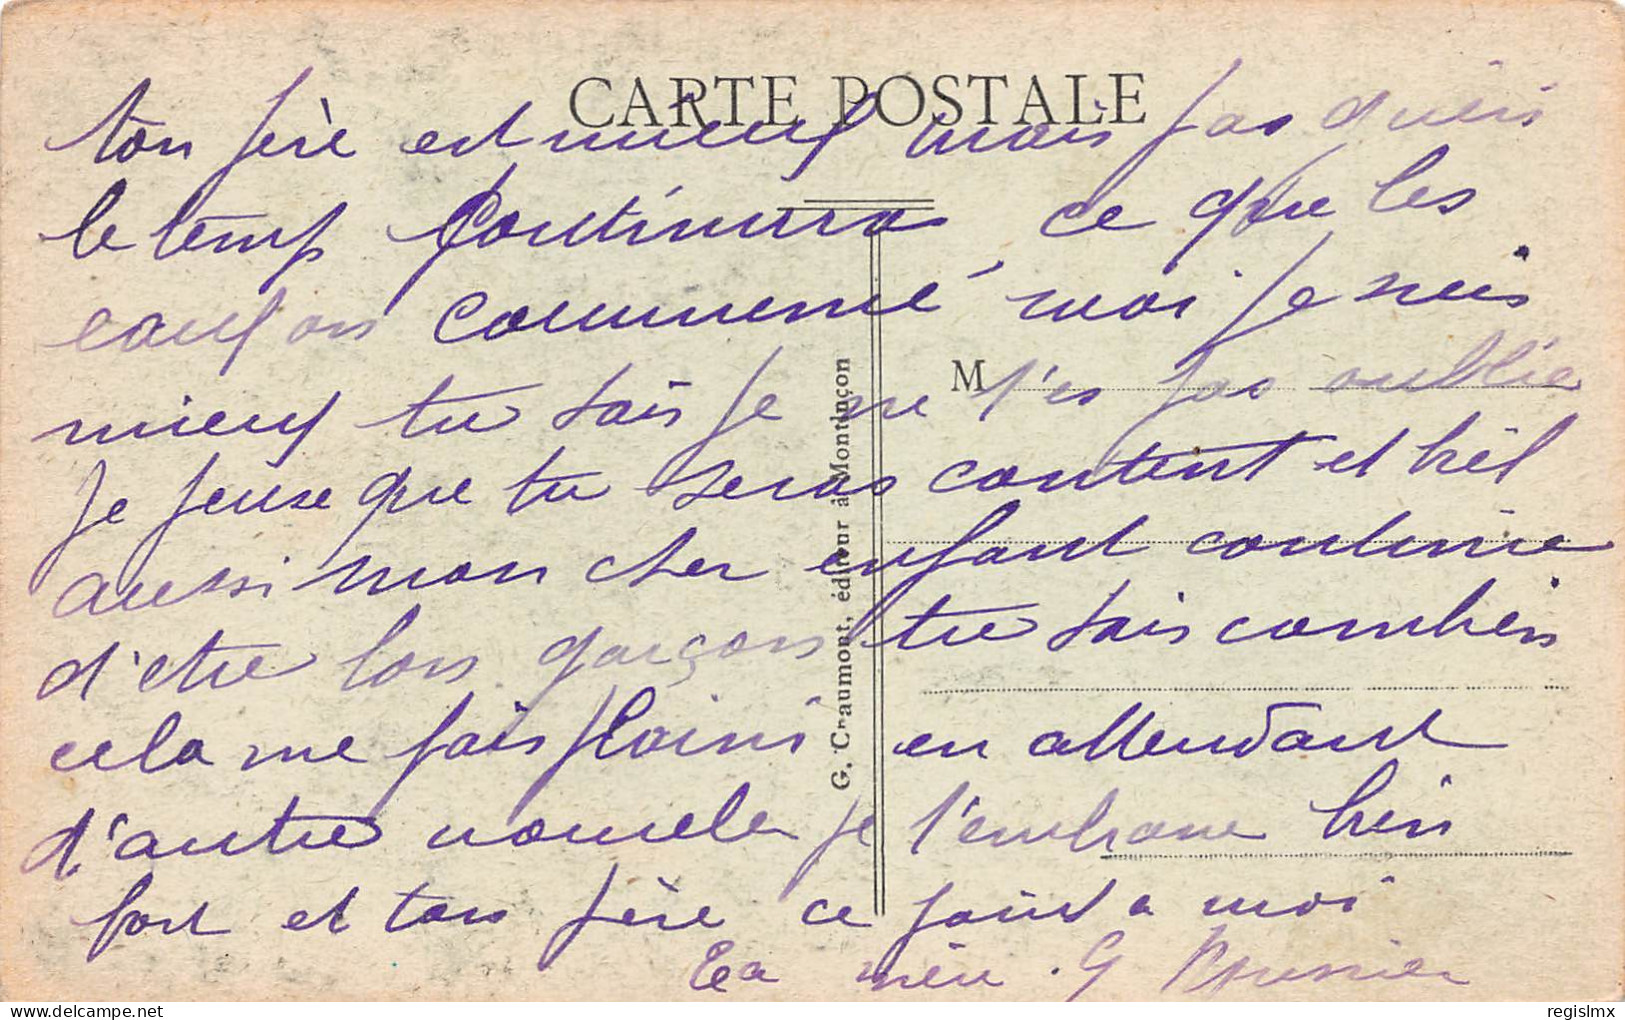 CARTE POSTALE
ton père est mieux mais pas queri
le temp continura ce que les
eauf on commencé moi je suis
mieux tu sais je ne t'es pas oublie
je pense que tu seras content et biel
aussi mon cher enfant continue
d'etre bon garçon tu sais combien
cela me fais plaisi en attendant
d'autre nouvele je t'embrasse bien
fort et ton père ce joint a moi
Ta mère G
M
G. Chaumont, éditeur à Montluçon
regislmx